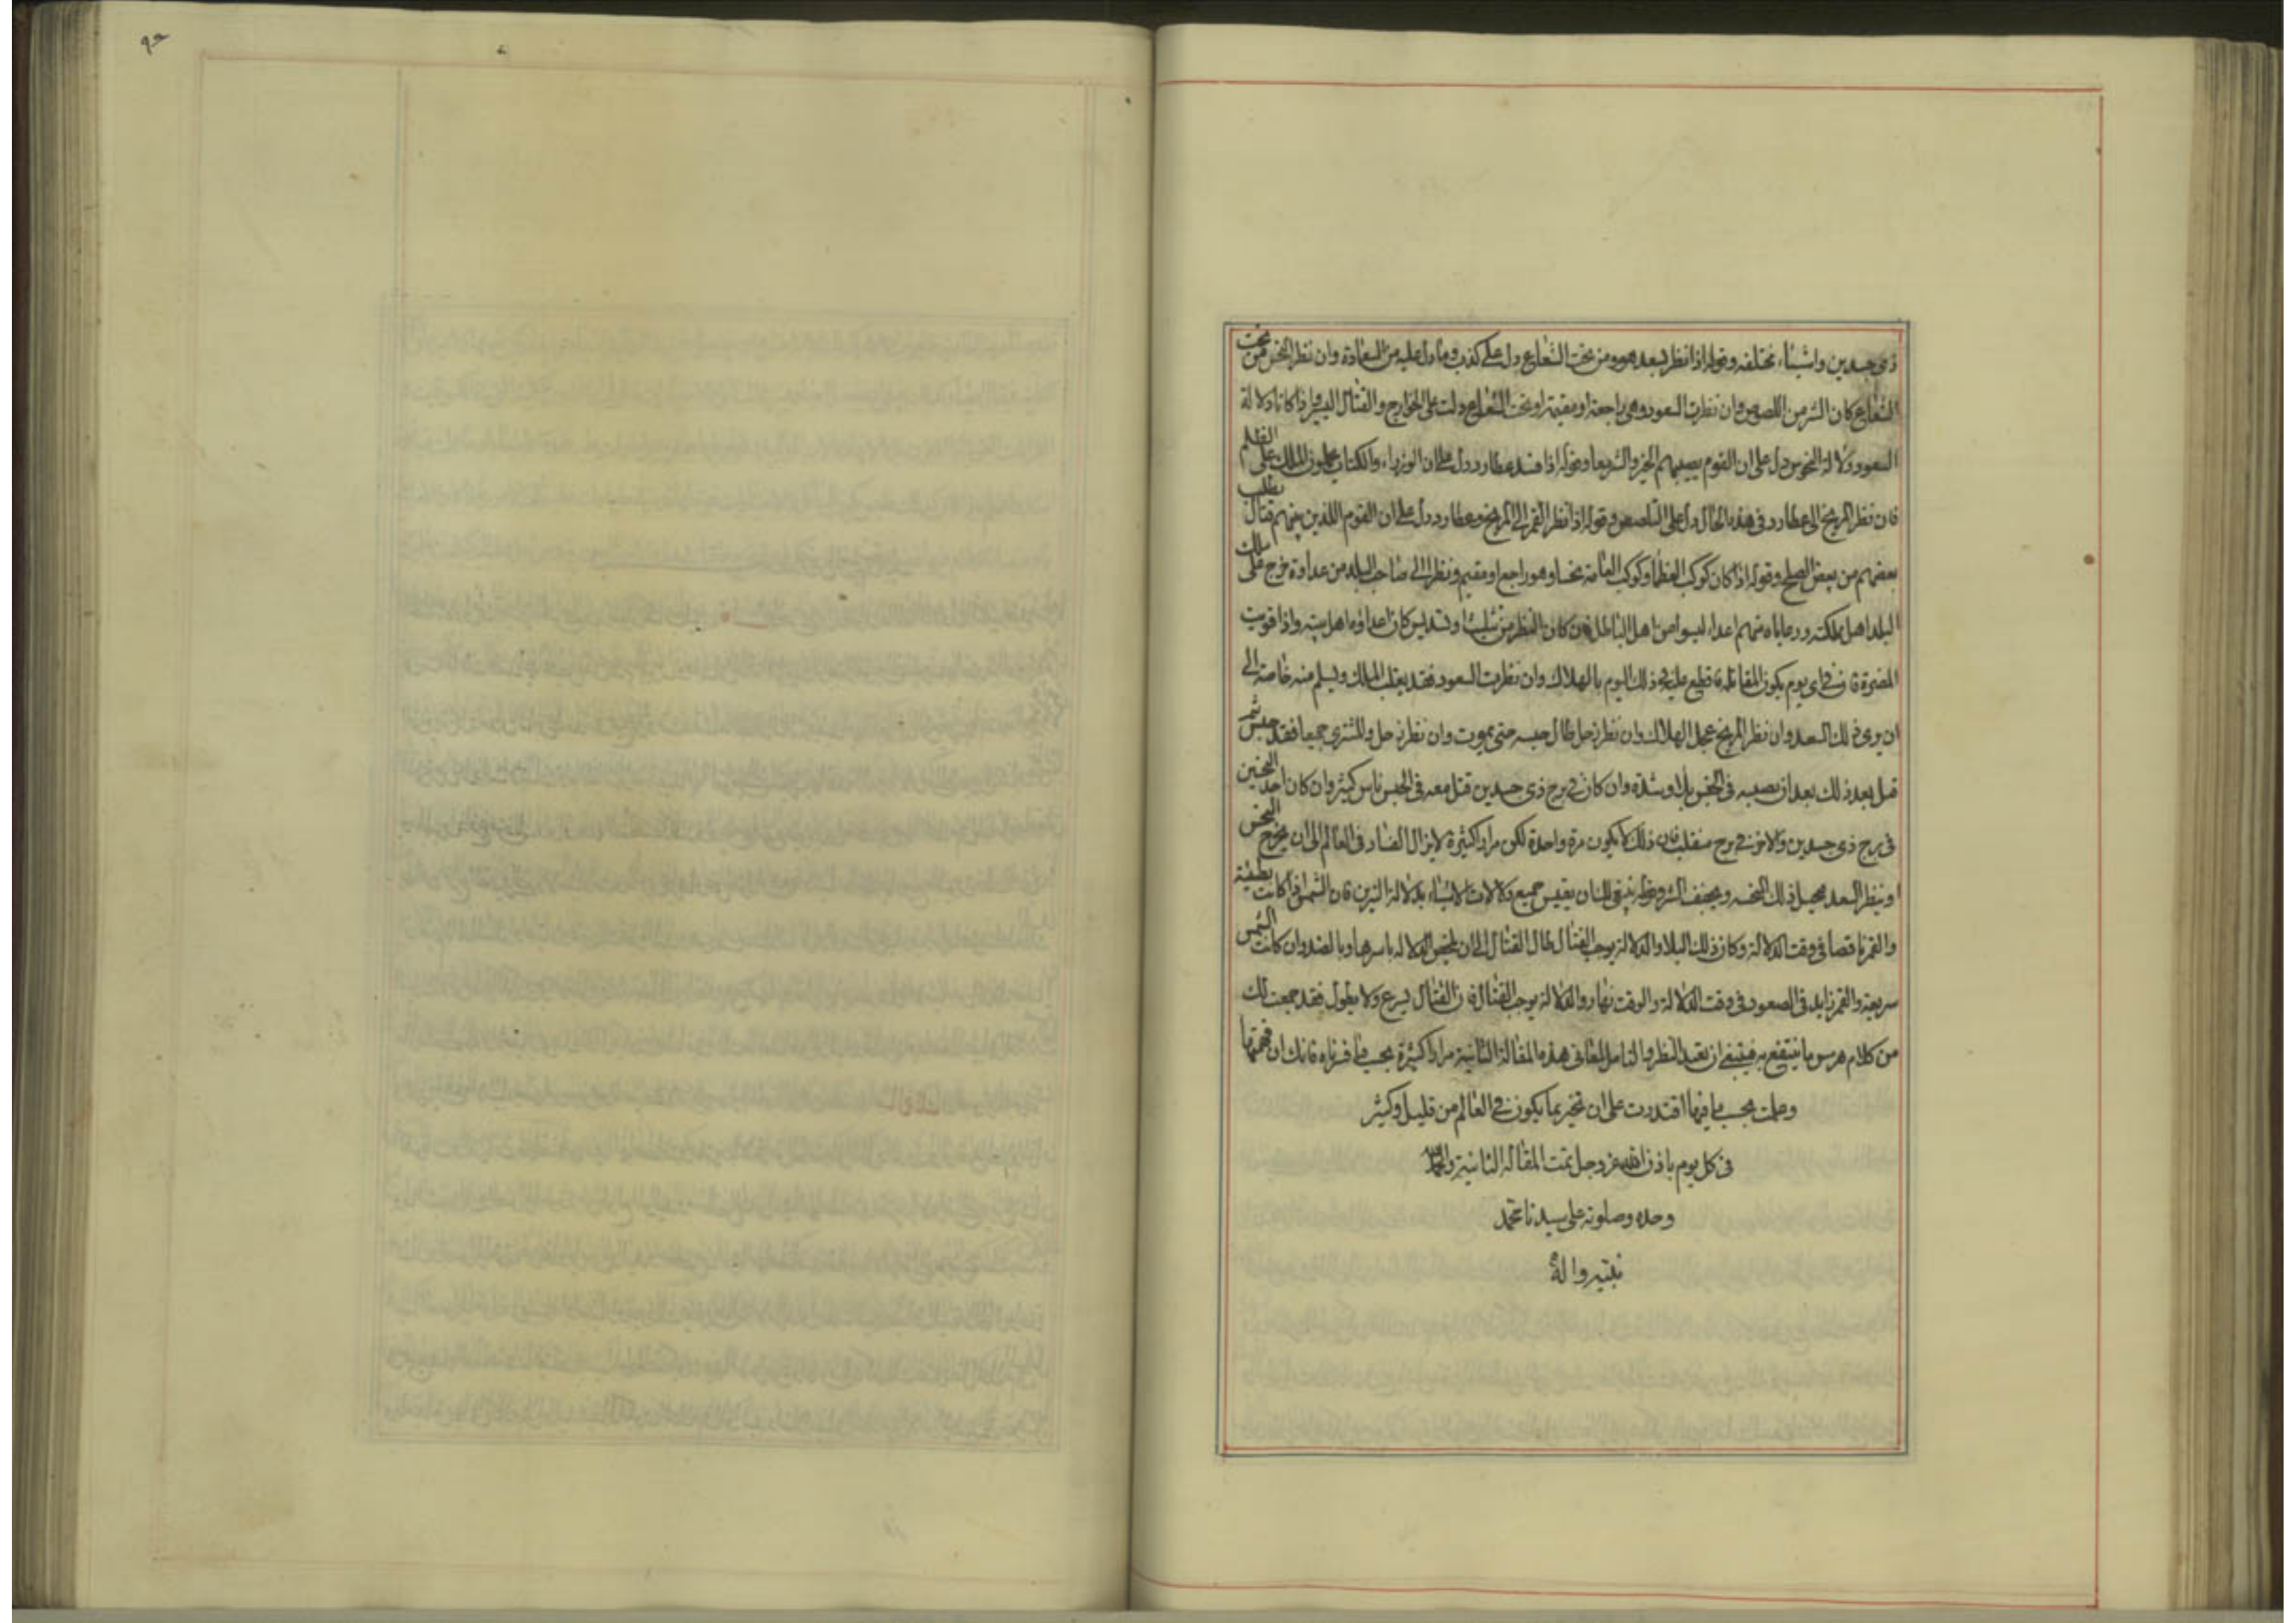 ذى جسدين واشياء مختلفه وقوله اذا نظر لسعد هو ومن تحت الشعاع دل على كذب وما دل عليه من السعادة وان نظر النحس من تحت
الشعاع كان الشر من اللصوص وان نظرت السعود وهى راجعة او مقيمة او تحت الشعاع دلت على الخوارج والقتال اليسير واذا كانا دلالة
السعود ودلالة النحوس دل على ان القوم يصيبهم الخير والشر معا وقوله اذا فسد عطارد دل على ان الوزراء والكتاب يحملون الملك على الظلم
فان نظر المريخ الى عطارد فى هذه الحال دل على التلصص وقوله اذا نظر القمر الى المريخ وعطارد دل على ان القوم اللذين بينهم قتال يطلب
بعضهم من بعض الصلح وقوله اذا كان كوكب العظما وكوكب العامة نحسا وهو راجع او مقيم ونظر الى صاحب البلد من عداوة خرج على ملك
البلد اهل مملكته ورعاياه منهم اعداء ليسوا من اهل الباطل فان كان النظر من تثليث او تسديس كان اعداؤه اهل بيته واذا قويت
المضرة فان فى اى يوم يكون المقابلة فاقطع عليه فى ذلك اليوم بالهلاك وان نظرت السعود فقد يغلب الملك ويسلم منه خاصة الى
ان يرى ذلك السعد وان نظر المريخ عجل الهلاك وان نظر زحل طال حبسه حتى يموت وان نظر زحل والمشترى جميعا فقد حبس ثم
قتل بعد ذلك بعد ان يصيبه فى الحبس بلاء وشدة وان كان فى برج ذى جسدين قتل معه فى الحبس ناس كثير وان كان احد النحسين
فى برج ذى جسدين والاخر فى برج منقلب فان ذلك لا يكون مرة واحدة لكن مرارا كثيرة لا يزال الفساد فى العالم الى ان يخرج النحس
او ينظر السعد فيحيل ذلك النحسه ويخفف الشر وقوله ينبغى لك ان تقيس جميع دلالات الاشياء بدلالة النيرين فان الشمس اذا كانت بطيئة
والقمر ناقصا فى وقت الدلالة وكان ذلك ليلا والدلالة توجب القتال طال القتال الى ان الدلالة باسرها وبالضد وان كانت الشمس
سريعة والقمر زايد فى الصعود فى وقت الدلالة والوقت نهار والدلالة توجب القتال فان القتال يسرع ولا يطول فقد جمعت لك
من كلام هرمس ما ينتفع به فينبغى ان تعيد النظر والتامل لمعانى هذه المقالة الثانية مرارا كثيرة بحسب ما فسرناه فانك ان فهمتها
وعملت بحسب ما فيها اقتدرت على ان تخبر بما يكون فى العالم من قليل وكثير
فى كل يوم باذن الله عز وجل تمت المقالة الثانية والحمد لله
وحده وصلوته على سيدنا محمد
نبيه واله